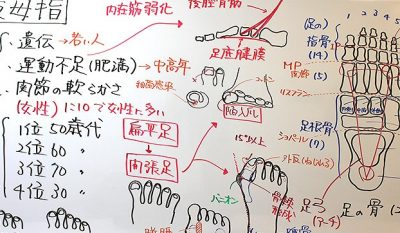 母指
内在筋弱化
後脛骨筋
足底腱膜
遺伝→若い人
運動不足(肥満)→中高年
関節の軟らかさ
(女性)1:10で女性に多い
1位 50歳代
2位 60 〃
3位 70 〃
4位 30 〃
扁平足
開張足
凹入ル
15°以上
バニオン
外反
足の
指骨
(14)
MP
関節
(5)
リスフラン
足根骨
ショパール(7)
足弓
(アーチ)
足の骨
1 2 3 4 5